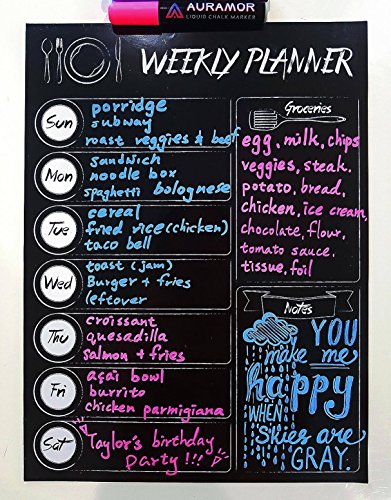 AURAMOR
LIQUID CHALK MARKER
WEEKLY PLANNER
Sun
porridge
subway
roast veggies & beef
Mon
sandwich
noodle box
spaghetti bolognese
Tue
cereal
fried rice (chicken)
taco bell
Wed
toast (jam)
Burger + fries
leftover
Thu
croissant
quesadilla
salmon + fries
Fri
açai bowl
burrito
chicken parmigiana
Sat
Taylor's birthday
Party !!!
Groceries
egg, milk, chips
veggies, steak,
potato, bread,
chicken, ice cream,
chocolate, flour,
tomato sauce,
tissue, foil
Notes
YOU
make me
happy
WHEN
Skies are
GRAY.